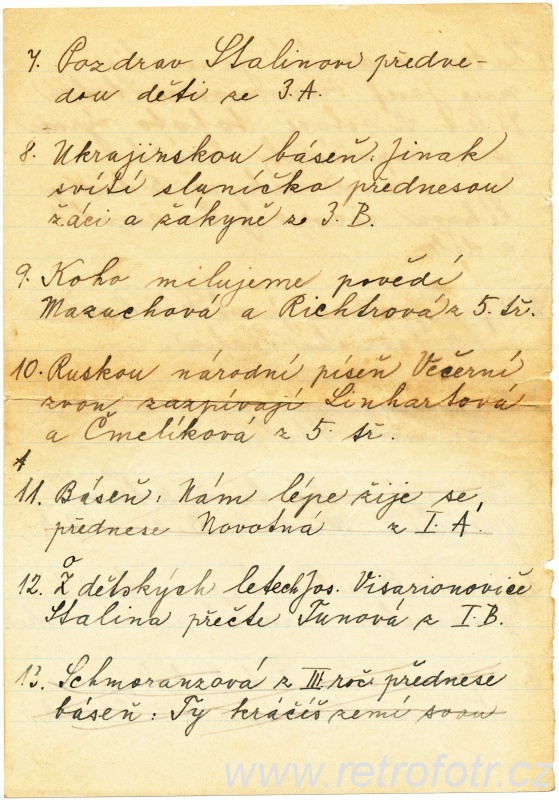 7. Pozdrav Stalinovi předve-
dou děti ze 3.A.
8. Ukrajinskou báseň: Jinak
svítí sluníčko přednesou
žáci a žákyně ze 3.B.
9. Koho milujeme povědí
Mazuchová a Richtrová z 5. tř.
10. Ruskou národní píseň Večerní
zvon zazpívají Linhartová
a Čmelíková z 5. tř.
11. Báseň: Nám lépe žije se,
přednese Novotná z I.A.
12. O dětských letech Jos. Visarionoviče
Stalina přečte Tunová z I.B.
13. Schmoranzová z III. roč. přednese
báseň: Ty kráčíš zemí svou
www.retrofotr.cz